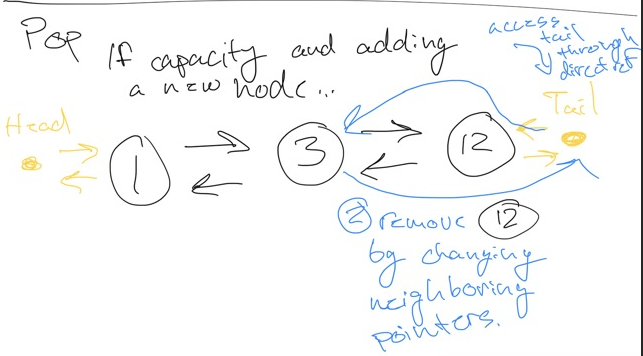 Pop
If capacity and adding
a new node...
access
tail
through
direct ref
Head
Tail
1
3
12
② remove 12
by changing
neighboring
pointers.